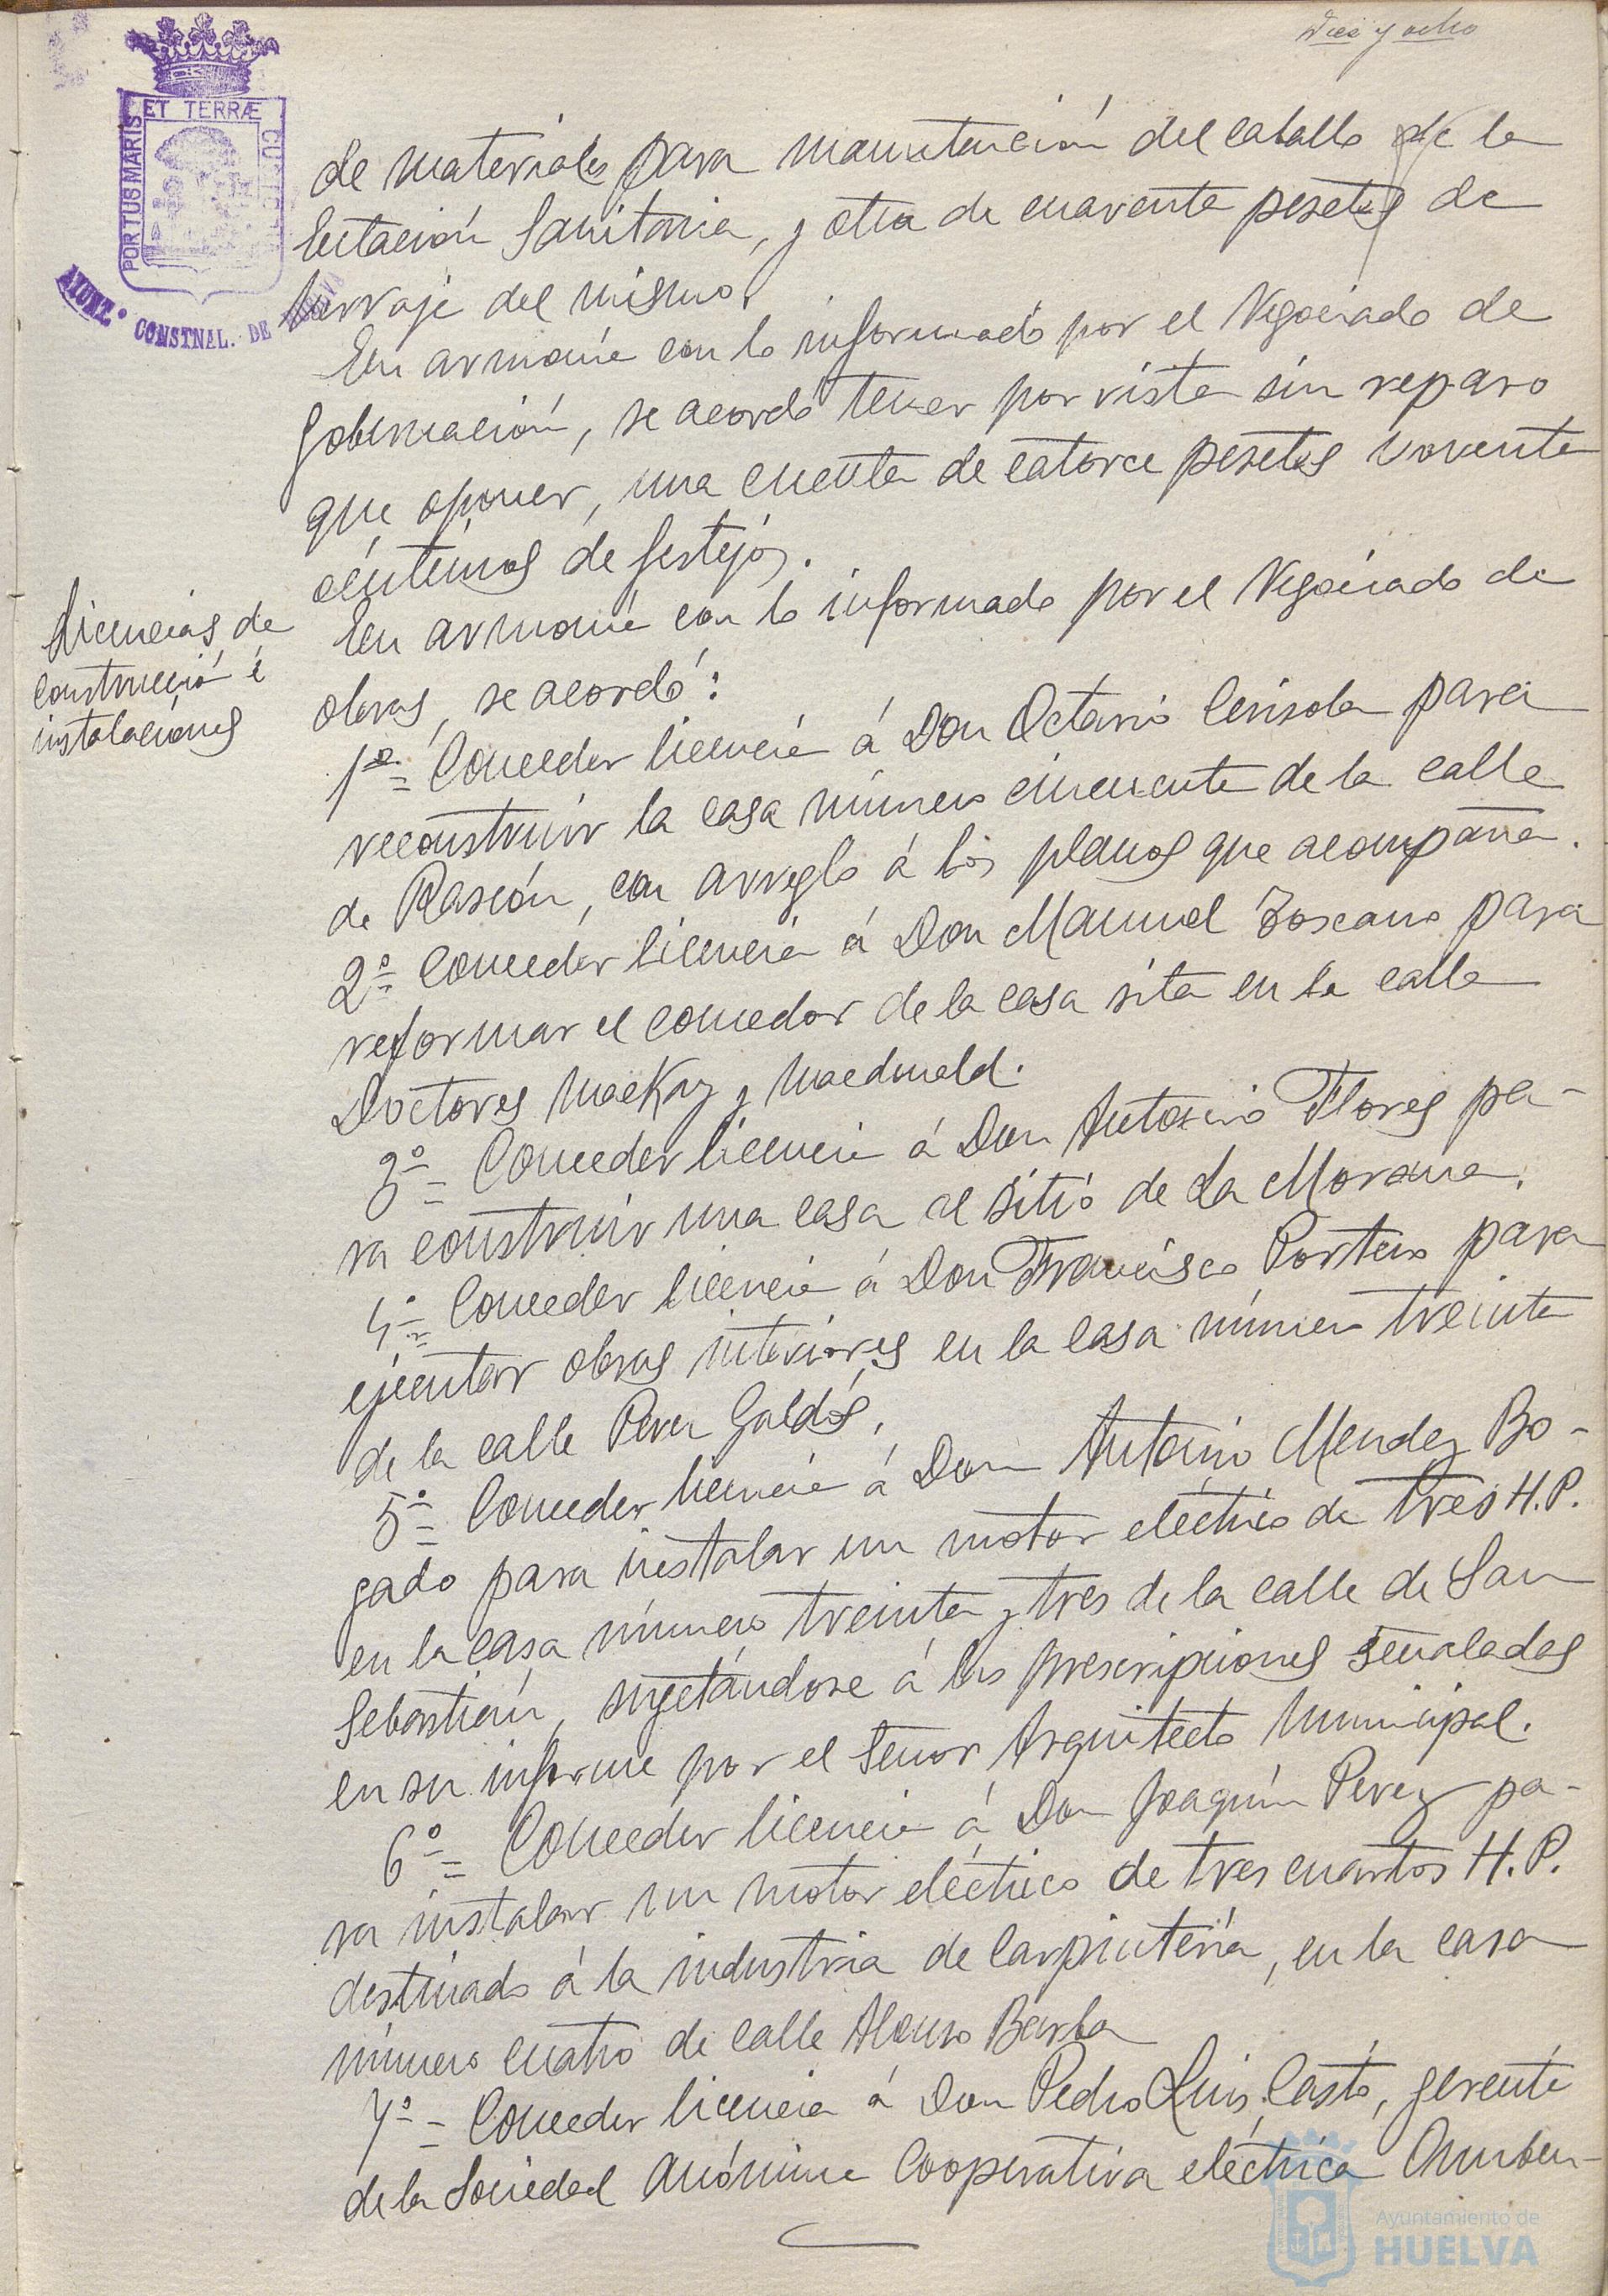 Diez y ocho
PORTUS MARIS
ET TERRÆ
CUSTODIA
AYUNT.º CONSTNAL. DE HUELVA
de materiales para manutención del caballo de la
Estación Sanitaria, y otra de cuarenta pesetas de
herraje del mismo.
En armonía con lo informado por el Negociado de
Gobernación, se acordó tener por vista sin reparo
que oponer, una cuenta de catorce pesetas noventa
céntimos de festejos.
Licencias de
construcción é
instalaciones
En armonía con lo informado por el Negociado de
obras, se acordó:
1º = Conceder licencia á Don Octavio Cerisola para
reconstruir la casa número cincuenta de la calle
de Rascón, con arreglo á los planos que acompaña.
2º = Conceder licencia á Don Manuel Toscano para
reformar el comedor de la casa sita en la calle
Doctores Mackay y Macdonald.
3º = Conceder licencia á Don Antonio Flores pa-
ra construir una casa al sitio de La Morana.
4º = Conceder licencia á Don Francisco Portero para
ejecutar obras interiores en la casa número treinta
de la calle Perez Galdós.
5º = Conceder licencia á Don Antonio Mendez Bo-
gado para instalar un motor eléctrico de tres H.P.
en la casa número treinta y tres de la calle de San
Sebastián, sujetándose á las prescripciones señaladas
en su informe por el Señor Arquitecto Municipal.
6º = Conceder licencia á Don Joaquín Perez pa-
ra instalar un motor eléctrico de tres cuartos H.P.
destinado á la industria de Carpintería, en la casa
número cuatro de calle Alonso Barba
7º = Conceder licencia á Don Pedro Luis Casto, gerente
de la Sociedad Anónima Cooperativa eléctrica Onuben-
Ayuntamiento de
HUELVA